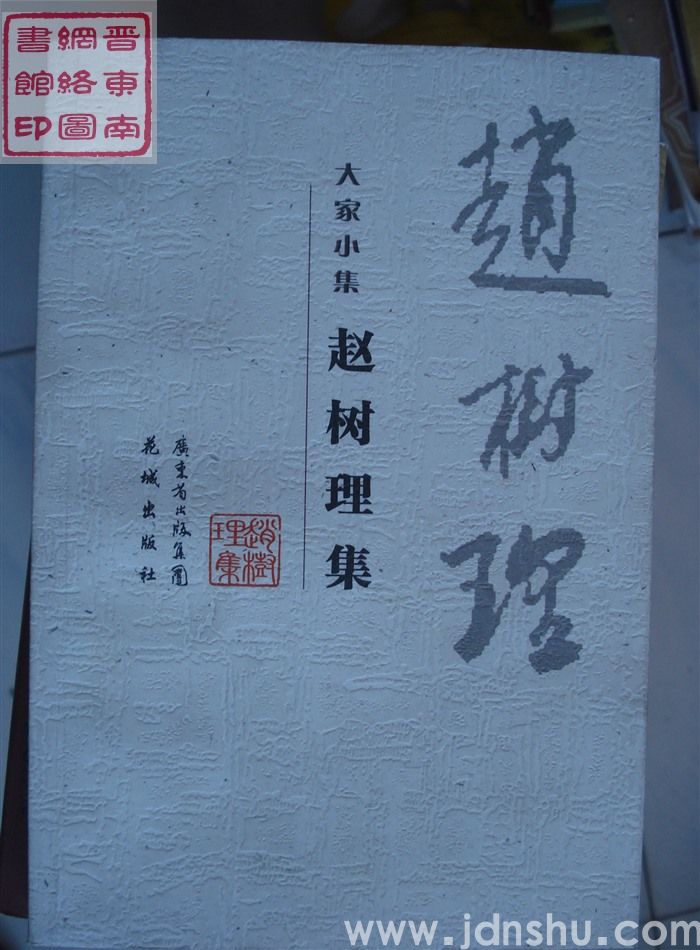 晋東南
網絡圖
書館印
趙樹理
大家小集
赵树理集
趙樹
理集
廣東省出版集團
花城出版社
www.jdnshu.com